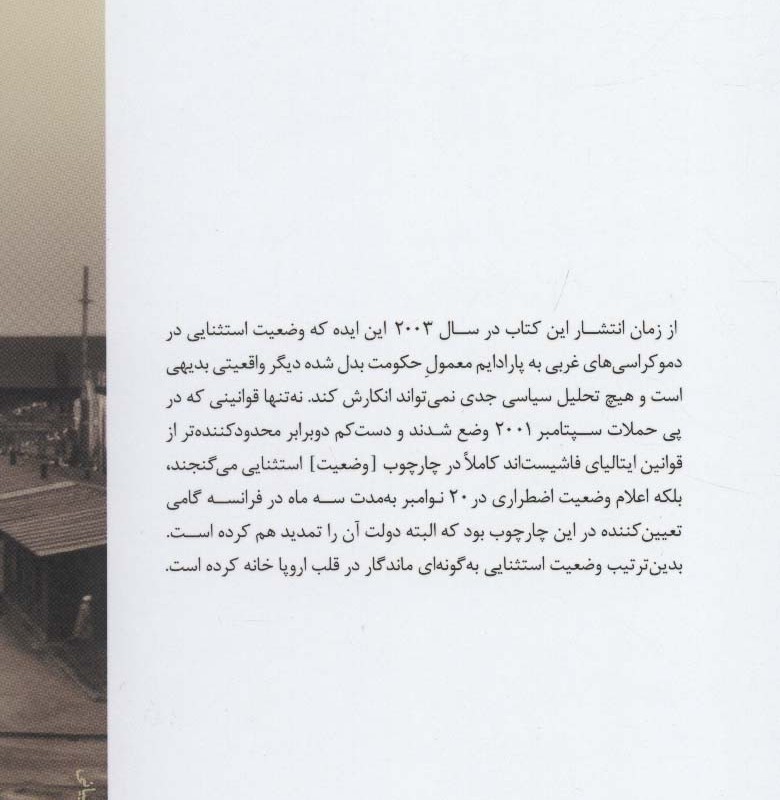 از زمان انتشار این کتاب در سال ۲۰۰۳ این ایده که وضعیت استثنایی در
دموکراسی‌های غربی به پارادایم معمولِ حکومت بدل شده دیگر واقعیتی بدیهی
است و هیچ تحلیل سیاسی جدی نمی‌تواند انکارش کند. نه‌تنها قوانینی که در
پی حملات سپتامبر ۲۰۰۱ وضع شدند و دست‌کم دوبرابر محدودکننده‌تر از
قوانین ایتالیای فاشیست‌اند کاملاً در چارچوب [وضعیت] استثنایی می‌گنجند،
بلکه اعلام وضعیت اضطراری در ۲۰ نوامبر به‌مدت سه ماه در فرانسه گامی
تعیین‌کننده در این چارچوب بود که البته دولت آن را تمدید هم کرده است.
بدین‌ترتیب وضعیت استثنایی به‌گونه‌ای ماندگار در قلب اروپا خانه کرده است.